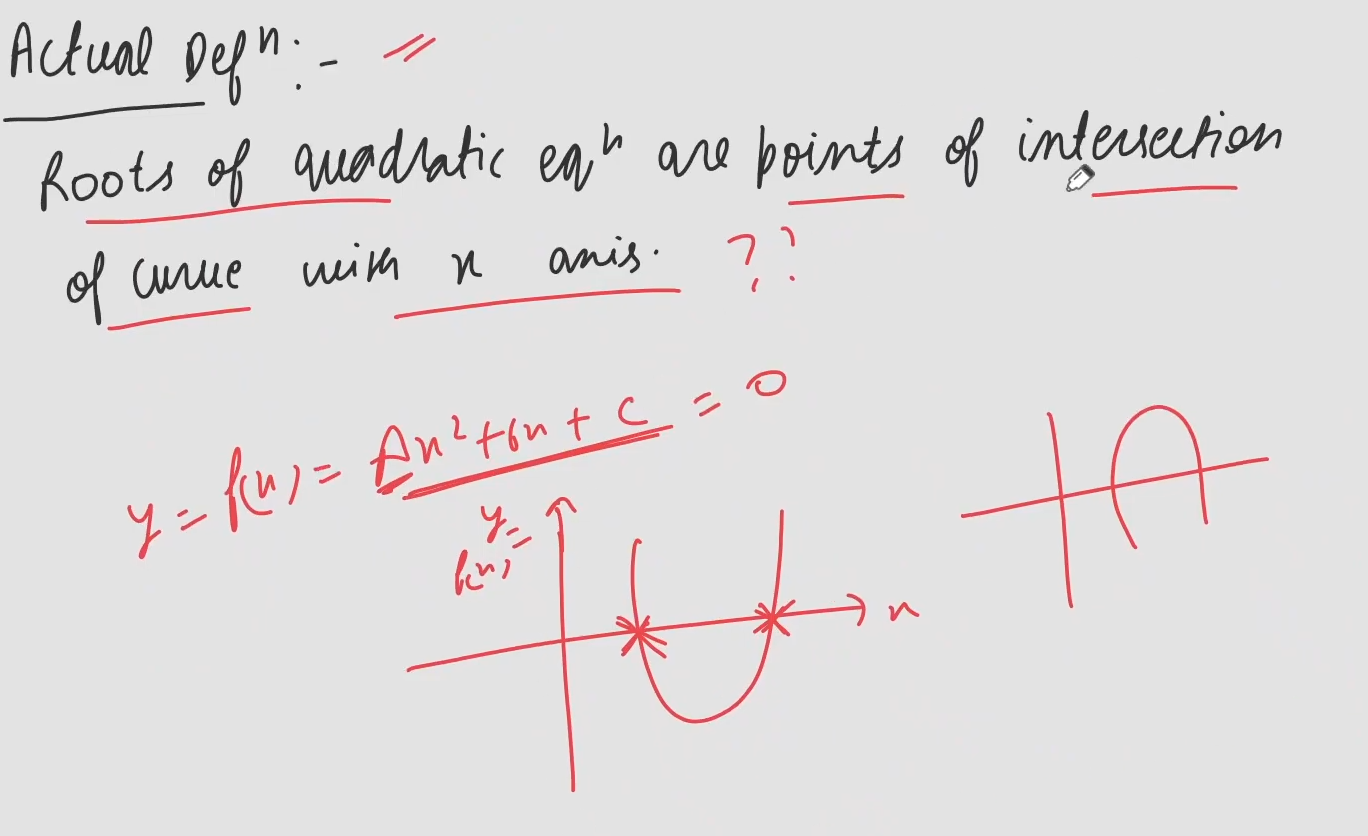 Actual Defⁿ:-
Roots of quadratic eqⁿ are points of intersection
of curve with x axis. ??
y = f(x) = Ax² + bx + c = 0
y =
f(x)
x